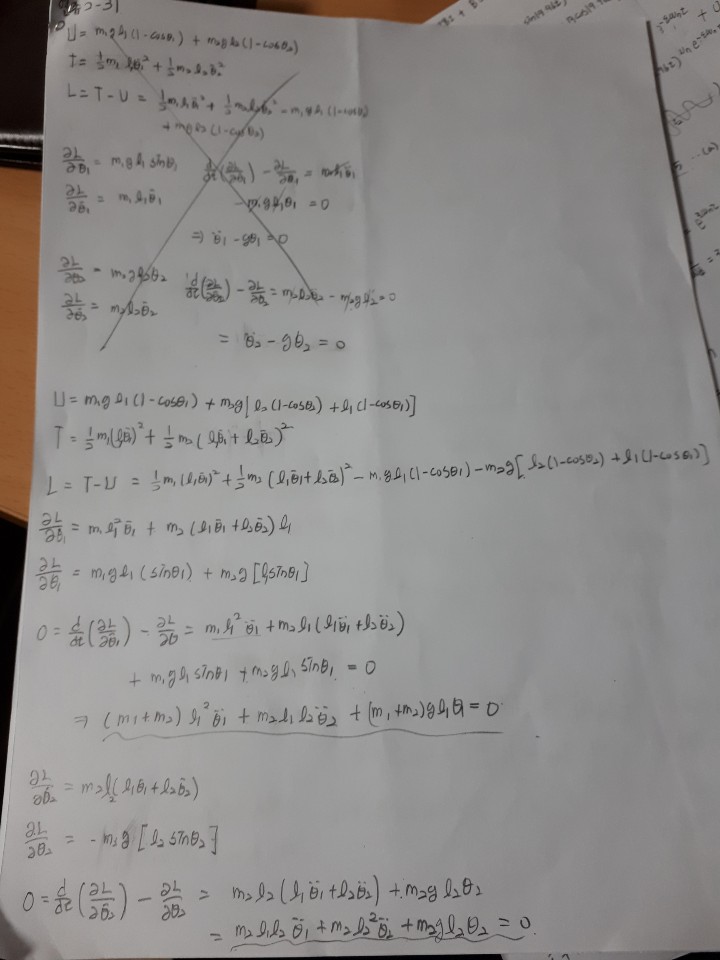 2-31
U = m₁gl₁(1-cosθ₁) + m₂gl₂(1-cosθ₂)
T = ½m₁l₁²θ̇₁² + ½m₂l₂²θ̇₂²
L = T-U = ½m₁l₁²θ̇₁² + ½m₂l₂²θ̇₂² - m₁gl₁(1-cosθ₁)
+ m₂gl₂(1-cosθ₂)
∂L/∂θ₁ = m₁gl₁sinθ₁ d/dt(∂L/∂θ̇₁) - ∂L/∂θ₁ = m₁l₁θ̈₁
∂L/∂θ̇₁ = m₁l₁θ̇₁ - m₁gl₁θ₁ = 0
⇒ θ̈₁ - gθ₁ = 0
∂L/∂θ₂ = m₂gl₂θ₂ d/dt(∂L/∂θ̇₂) - ∂L/∂θ₂ = m₂l₂θ̈₂ - m₂gl₂ = 0
∂L/∂θ̇₂ = m₂l₂θ̇₂
= θ̈₂ - gθ₂ = 0
U = m₁gl₁(1-cosθ₁) + m₂g[l₂(1-cosθ₂) + l₁(1-cosθ₁)]
T = ½m₁(l₁θ̇₁)² + ½m₂(l₁θ̇₁ + l₂θ̇₂)²
L = T-U = ½m₁(l₁θ̇₁)² + ½m₂(l₁θ̇₁ + l₂θ̇₂)² - m₁gl₁(1-cosθ₁) - m₂g[l₂(1-cosθ₂) + l₁(1-cosθ₁)]
∂L/∂θ̇₁ = m₁l₁²θ̇₁ + m₂(l₁θ̇₁ + l₂θ̇₂)l₁
∂L/∂θ₁ = m₁gl₁(sinθ₁) + m₂g[l₁sinθ₁]
0 = d/dt(∂L/∂θ̇₁) - ∂L/∂θ = m₁l₁²θ̈₁ + m₂l₁(l₁θ̈₁ + l₂θ̈₂)
+ m₁gl₁sinθ₁ + m₂gl₁sinθ₁ = 0
⇒ (m₁+m₂)l₁²θ̈₁ + m₂l₁l₂θ̈₂ + (m₁+m₂)gl₁θ₁ = 0
∂L/∂θ̇₂ = m₂l₂(l₁θ̇₁ + l₂θ̇₂)
∂L/∂θ₂ = -m₂g[l₂sinθ₂]
0 = d/dt(∂L/∂θ̇₂) - ∂L/∂θ₂ = m₂l₂(l₁θ̈₁ + l₂θ̈₂) + m₂gl₂θ₂
= m₂l₁l₂θ̈₁ + m₂l₂²θ̈₂ + m₂gl₂θ₂ = 0.